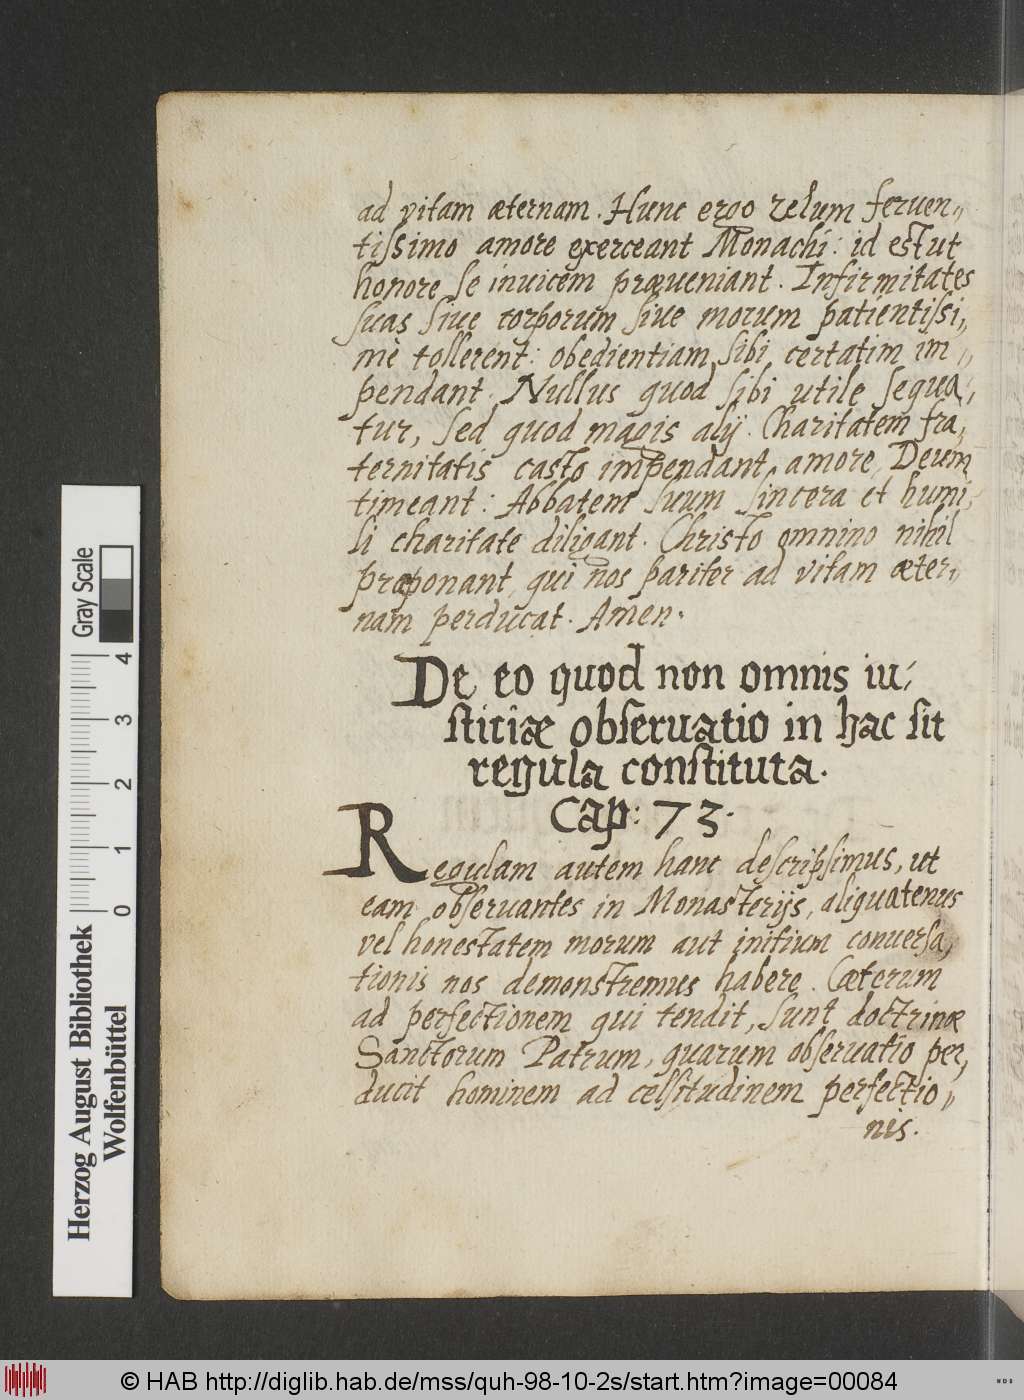 ad vitam æternam. Hunc ergo zelum feruen„
tissimo amore exerceant Monachi: id est ut
honore se inuicem præueniant. Infirmitates
suas siue corporum siue morum patientissi„
mè tollerent: obedientiam sibi certatim im„
pendant. Nullus quod sibi utile sequa„
tur, sed quod magis alÿ. Charitatem fra„
ternitatis casto impendant amore, Deum
timeant: Abbatem suum sincera et humi„
li charitate diligant. Christo omnino nihil
præponant, qui nos pariter ad vitam æter„
nam perducat. Amen.
De eo quod non omnis iu„
sticiæ obseruatio in hac sit
regula constituta.
Cap: 73.
Regulam autem hanc descripsimus, ut
eam obseruantes in Monasterijs, aliquatenus
vel honestatem morum aut initium conuersa„
tionis nos demonstremus habere. Cæterum
ad perfectionem qui tendit, sunt doctrinæ
Sanctorum Patrum, quarum obseruatio per„
ducit hominem ad celsitudinem perfectio„
nis.
Gray Scale
4
3
2
1
0
Herzog August Bibliothek
Wolfenbüttel
© HAB http://diglib.hab.de/mss/quh-98-10-2s/start.htm?image=00084